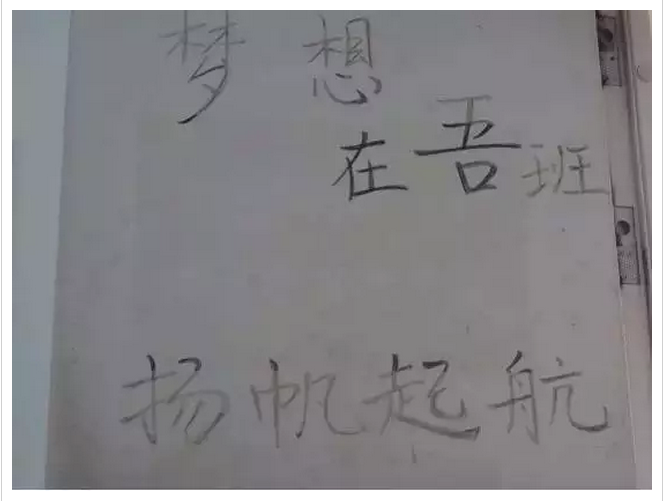 梦想
在吾班
扬帆起航